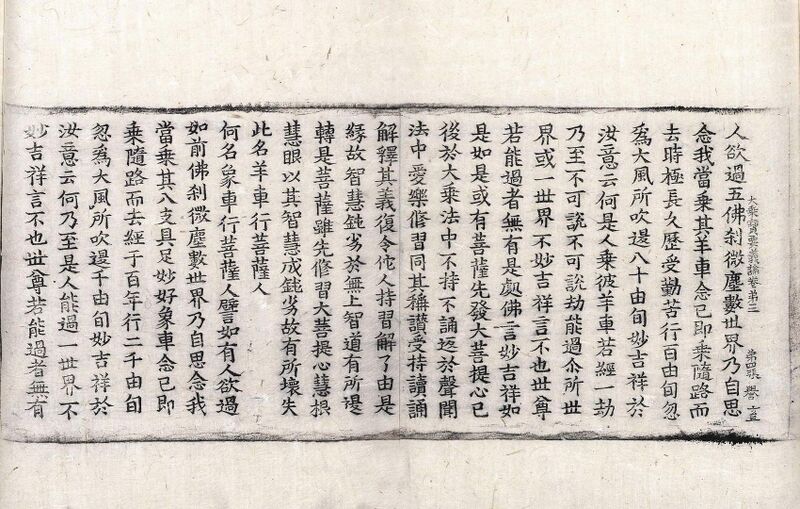 大乘寶要義論卷第三　第　張　譽
人欲過五佛刹微塵數世界乃自思
念我當乘其羊車念已即乘隨路而
去時極長久歷受勤苦行百由旬忽
爲大風所吹退八十由旬妙吉祥於
汝意云何是人乘彼羊車若經一劫
乃至不可說不可說劫能過尒所世
界或一世界不妙吉祥言不也世尊
若能過者無有是處佛言妙吉祥如
是如是或有菩薩先發大菩提心已
後於大乘法中不持不誦返於聲聞
法中愛樂修習同其稱讚受持讀誦
解釋其義復令佗人持習解了由是
緣故智慧鈍劣於無上智道有所退
轉是菩薩雖先修習大菩提心慧根
慧眼以其智慧成鈍劣故有所壞失
此名羊車行菩薩人
何名象車行菩薩人譬如有人欲過
如前佛刹微塵數世界乃自思念我
當乘其八支具足妙好象車念已即
乘隨路而去經于百年行二千由旬
忽爲大風所吹退千由旬妙吉祥於
汝意云何乃至是人能過一世界不
妙吉祥言不也世尊若能過者無有